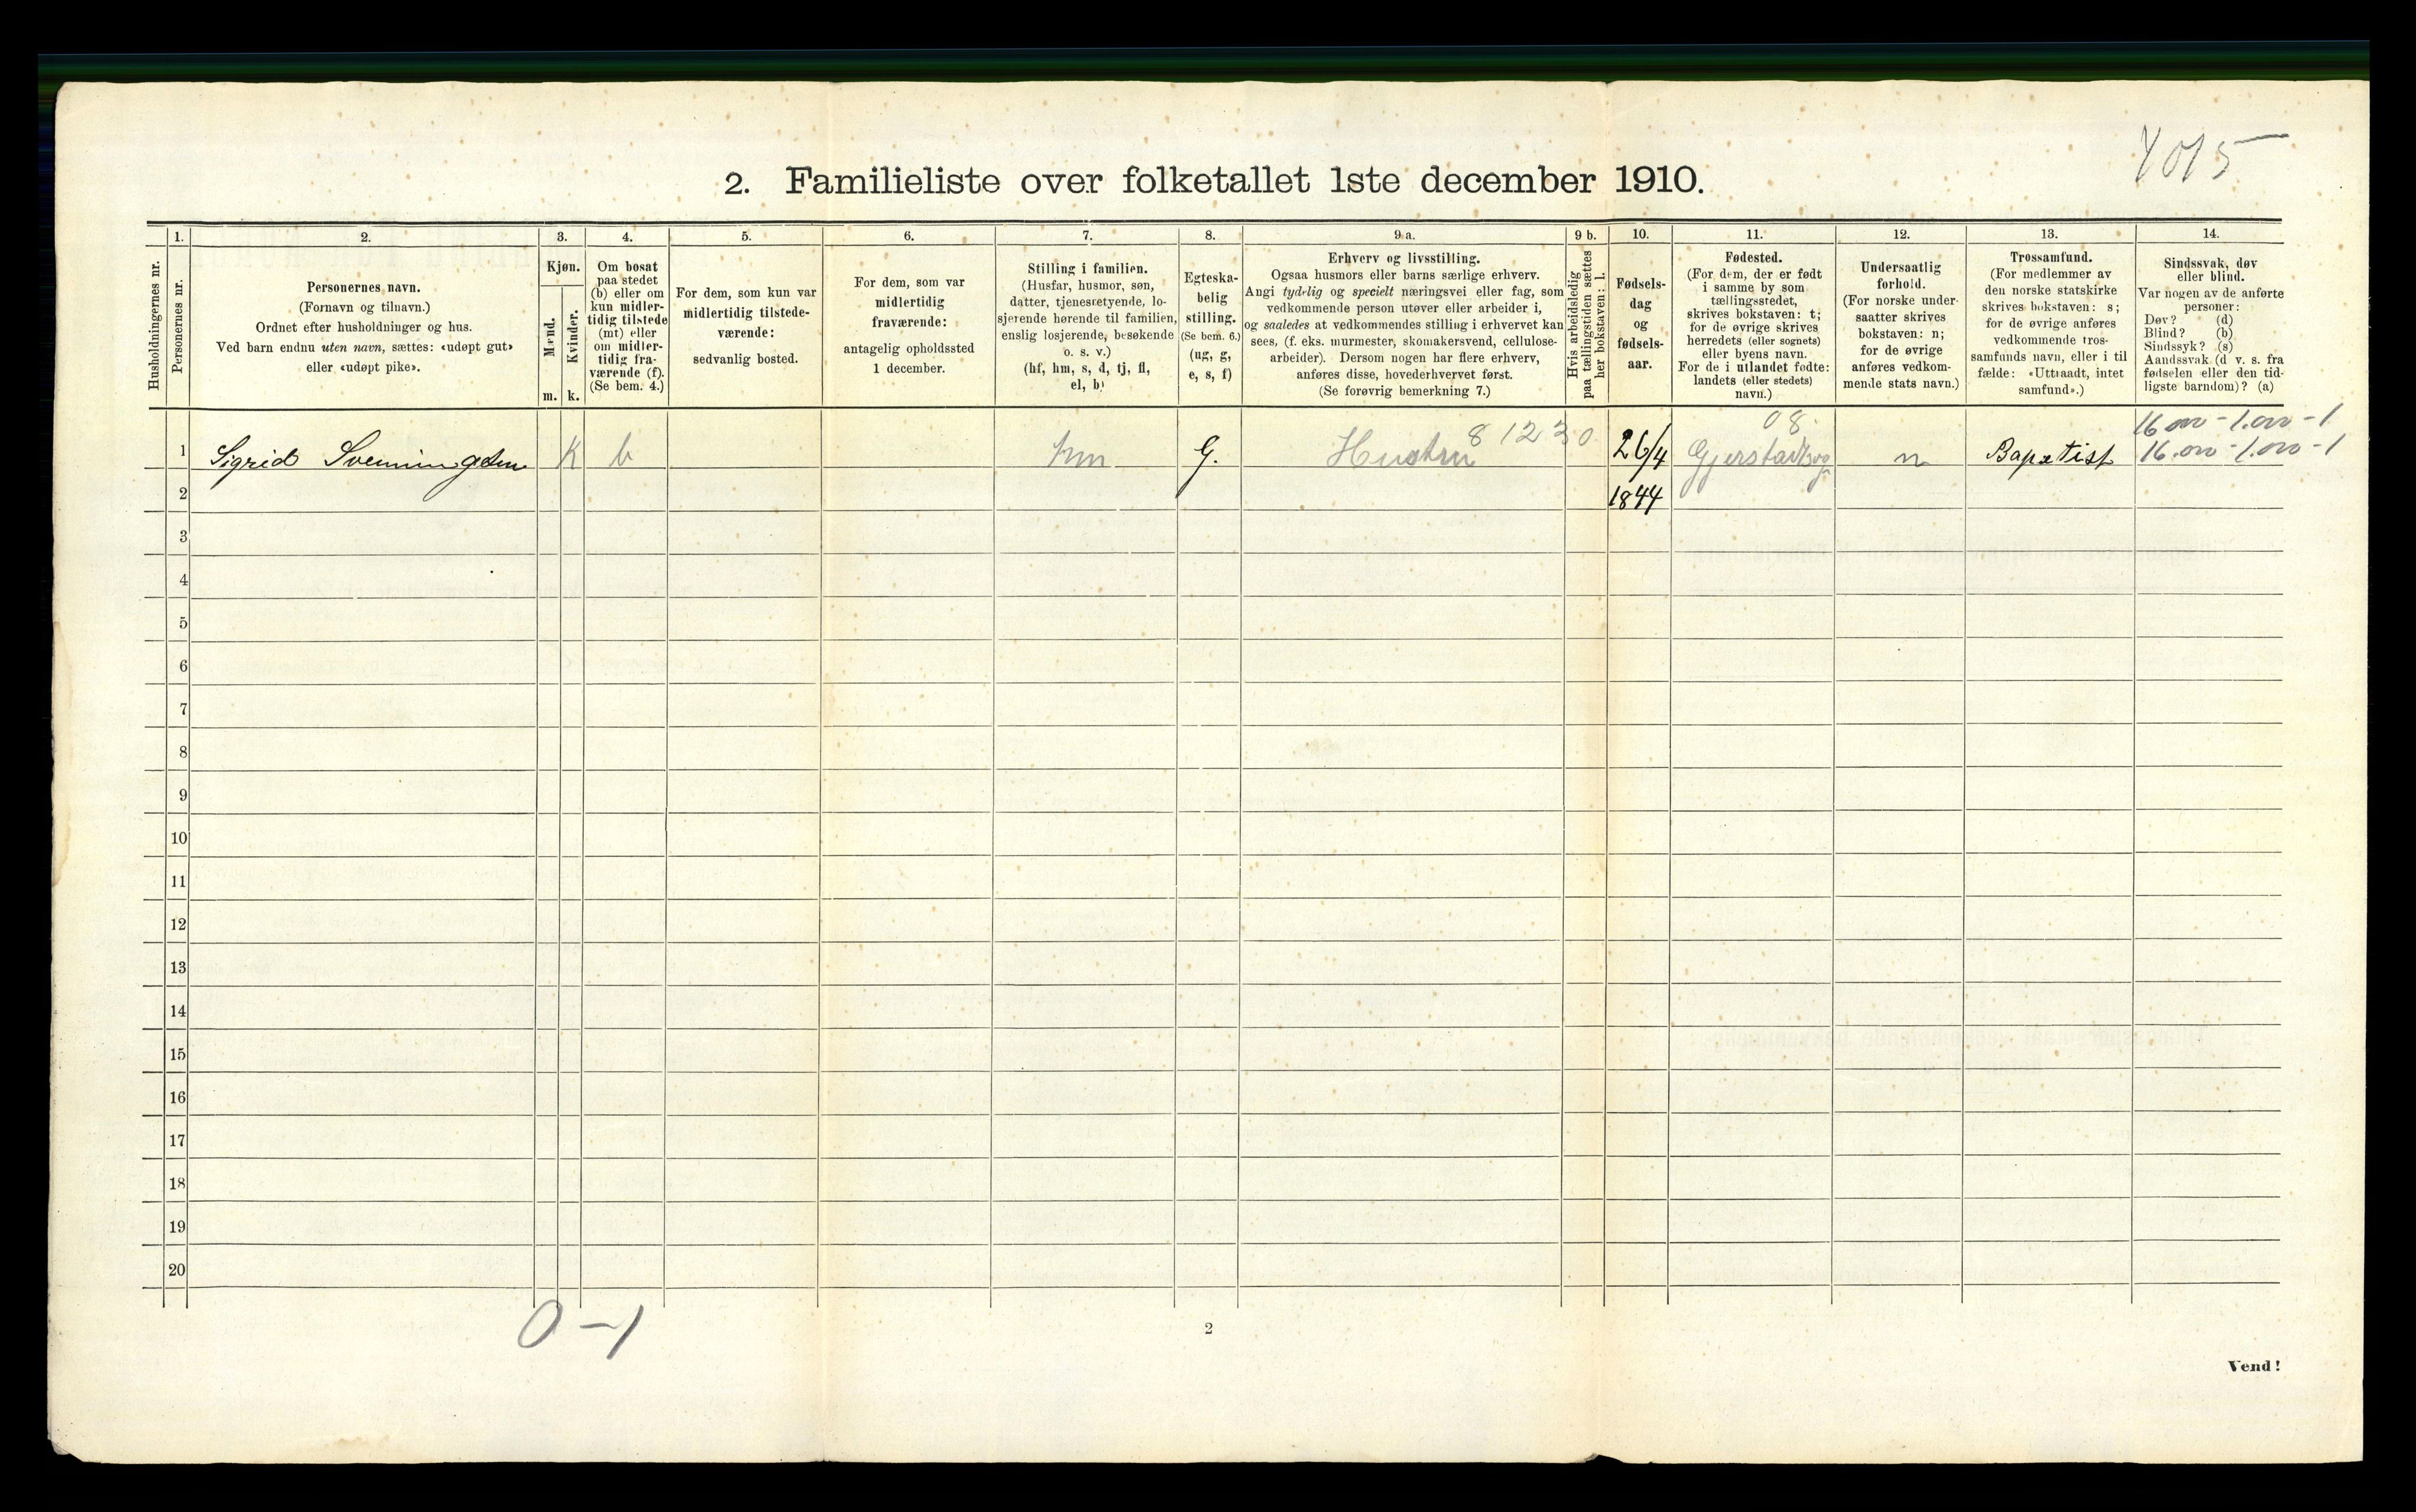 4015
2. Familieliste over folketallet 1ste december 1910.
Husholdningernes nr.
1.
Personernes nr.
2.
Personernes navn.
(Fornavn og tilnavn.)
Ordnet efter husholdninger og hus.
Ved barn endnu uten navn, sættes: «udøpt gut»
eller «udøpt pike».
3.
Kjøn.
Mænd.
Kvinder.
m. k.
4.
Om bosat
paa stedet
(b) eller om
kun midler-
tidig tilstede
(mt) eller
om midler-
tidig fra-
værende (f).
(Se bem. 4.)
5.
For dem, som kun var
midlertidig tilstede-
værende:
sedvanlig bosted.
6.
For dem, som var
midlertidig
fraværende:
antagelig opholdssted
1 december.
7.
Stilling i familien.
(Husfar, husmor, søn,
datter, tjenestetyende, lo-
sjerende hørende til familien,
enslig losjerende, besøkende
o. s. v.)
(hf, hm, s, d, tj, fl,
el, b)
8.
Egteska-
belig
stilling.
(Se bem. 6.)
(ug, g,
e, s, f)
9 a.
Erhverv og livsstilling.
Ogsaa husmors eller barns særlige erhverv.
Angi tydelig og specielt næringsvei eller fag, som
vedkommende person utøver eller arbeider i,
og saaledes at vedkommendes stilling i erhvervet kan
sees, (f. eks. murmester, skomakersvend, cellulose-
arbeider). Dersom nogen har flere erhverv,
anføres disse, hovederhvervet først.
(Se forøvrig bemerkning 7.)
9 b.
Hvis arbeidsledig
paa tællingstiden sættes
her bokstaven: l.
10.
Fødsels-
dag
og
fødsels-
aar.
11.
Fødested.
(For dem, der er født
i samme by som
tællingsstedet,
skrives bokstaven: t;
for de øvrige skrives
herredets (eller sognets)
eller byens navn.
For de i utlandet fødte:
landets (eller stedets)
navn.)
12.
Undersaatlig
forhold.
(For norske under-
saatter skrives
bokstaven: n;
for de øvrige
anføres vedkom-
mende stats navn.)
13.
Trossamfund.
(For medlemmer av
den norske statskirke
skrives bokstaven: s;
for de øvrige anføres
vedkommende tros-
samfunds navn, eller i til-
fælde: «Uttraadt, intet
samfund».)
14.
Sindssvak, døv
eller blind.
Var nogen av de anførte
personer:
Døv? (d)
Blind? (b)
Sindssyk? (s)
Aandssvak (d v. s. fra
fødselen eller den tid-
ligste barndom)? (a)
8 12 30 08 16.000-1.000-1
1 Sigrid Svenningsen K b hm G. Hustru 26/4 Gjerstad sogn n Baptist 16.000-1.000-1
2 1844
3
4
5
6
7
8
9
10
11
12
13
14
15
16
17
18
19
20
0-1
2
Vend!